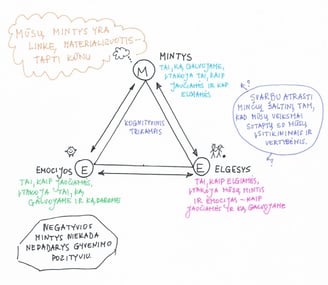 MŪSŲ MINTYS YRA
LINKĘ MATERIALIZUOTIS –
TAPTI KŪNU
MINTYS
TAI, KĄ GALVOJAME,
ĮTAKOJA TAI, KAIP
JAUČIAMĖS IR KAP
ELGIAMĖS
M
KOGNITYVINIS
TRIKAMPIS
SVARBU ATRASTI
MINČIŲ ŠALTINĮ TAM,
KAD MŪSŲ VEIKSMAI
SUTAPTŲ SU MŪSŲ
ĮSITIKINIMAIS IR
VERTYBĖMIS.
EMOCIJOS
E
E
ELGESYS
TAI, KAIP JAUČIAMĖS,
ĮTAKOJA TAI, KĄ
GALVOJAME IR KĄ DAROME
TAI, KAIP ELGIAMĖS,
ĮTAKOJA MŪSŲ MINTIS
IR EMOCIJAS – KAIP
JAUČIAMĖS IR KĄ GALVOJAME
NEGATYVIOS
MINTYS NIEKADA
NEDARYS GYVENIMO
POZITYVIU.